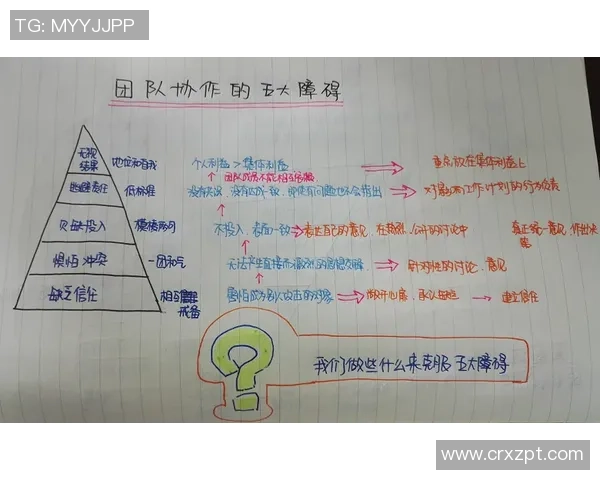 TG: MYYJJPP
团队协作的五大障碍
无视结果 地位和自我 个人利益 > 集体利益 重点放在集体利益上
团队成员不能相互
逃避责任 低标准 没有 没有 即使有问题也不会指出 对 工作计划的 负责
欠缺投入 模棱两可 不投入，表面一致 表达自己的意见，在 公开的讨论中 真正统一意见，作出决策
惧怕冲突 一团和气 无法产生直接而激烈的思想交锋 针对性的讨论、意见
缺乏信任 相互 戒备 害怕成为别人攻击的对象 敞开心扉，承认 建立信任
我们做些什么来克服五大障碍
www.crxzpt.com